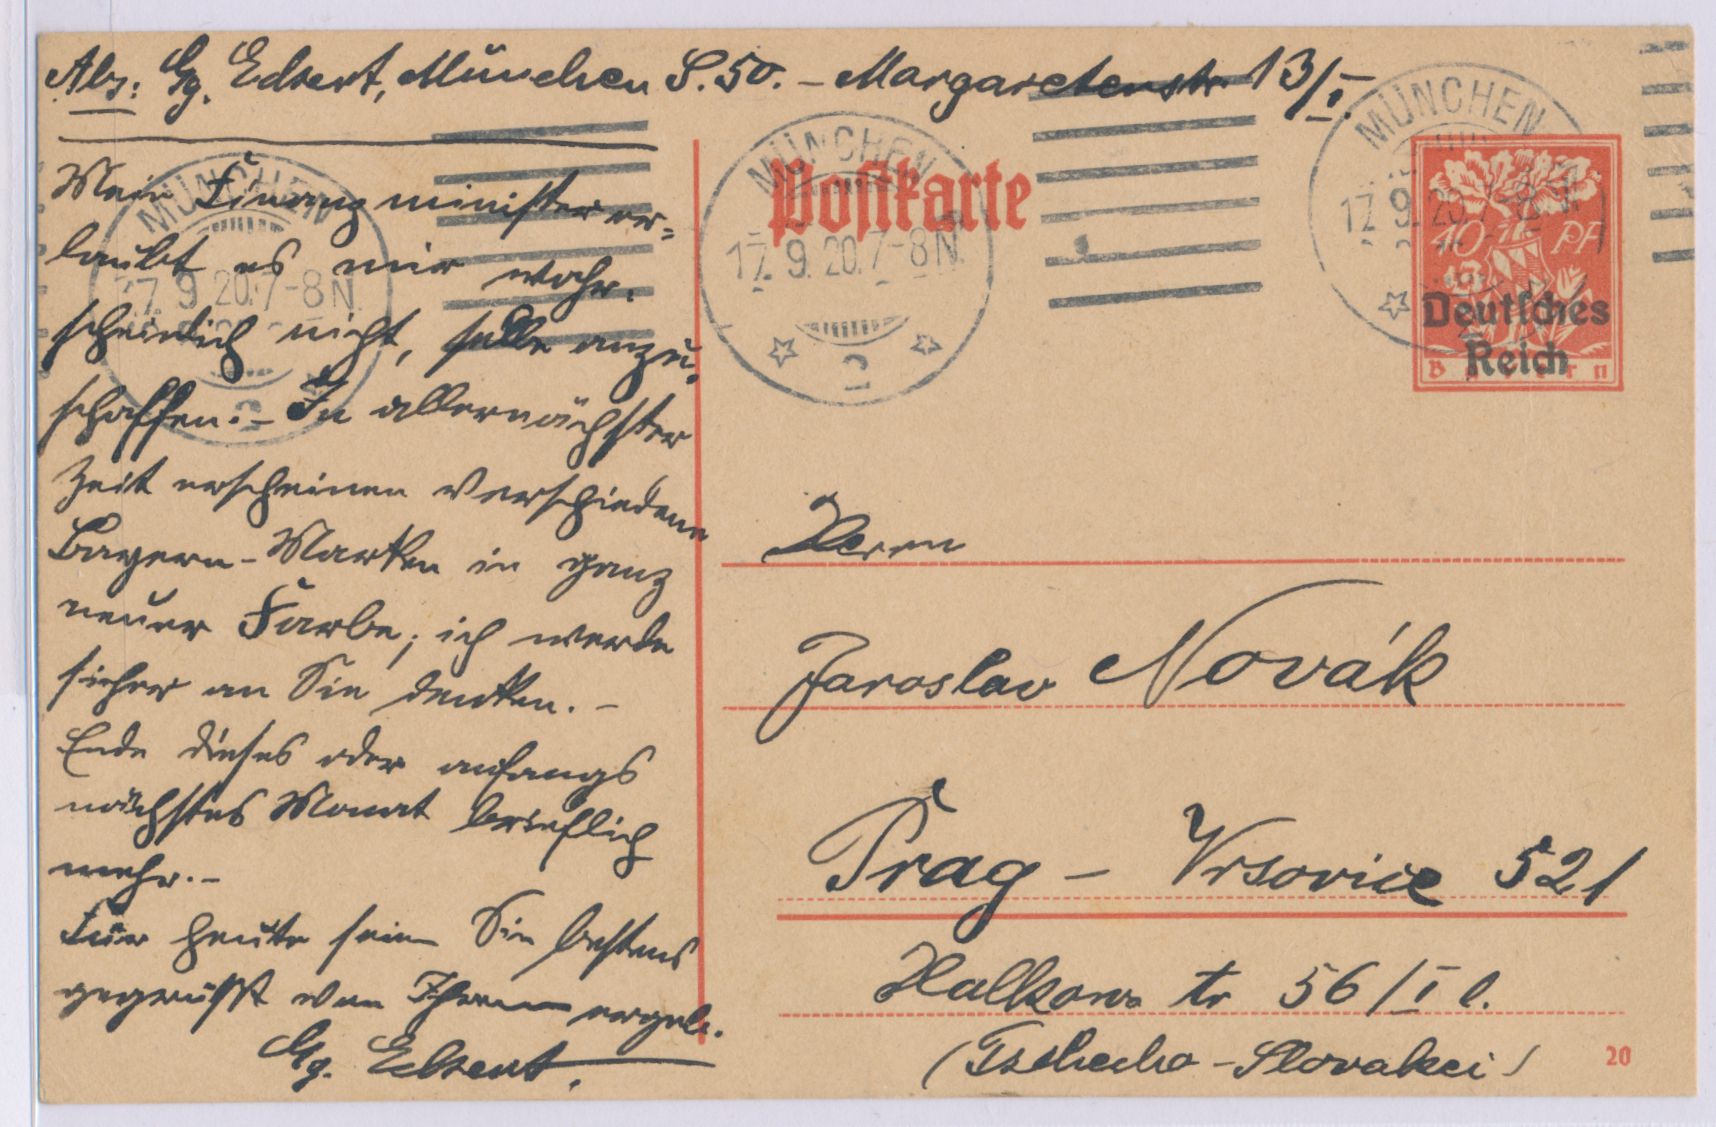 Abs: Gg. Eckert, München S. 50. – Margaretenstr. 13/I.
Mein Finanzminister er=
laubt es mir wahr-
scheinlich nicht, selbe anzu-
schaffen. – In allernächster
Zeit erscheinen verschiedene
Bayern-Marken in ganz
neuer Farbe; ich werde
sicher an Sie denken. –
Ende dieses oder anfangs
nächstes Monat brieflich
mehr. –
Für heute seien Sie bestens
gegrüßt von Ihrem ergeb.
Gg. Eckert.
Postkarte
MÜNCHEN
17. 9. 20. 7-8 N.
2
MÜNCHEN
17. 9. 20. 7-8 N.
2
MÜNCHEN
17. 9. 20. 7-8 N.
10 PF
Deutsches
Reich
Bayern
Herrn
Jaroslav Novák
Prag – Vrsovice 521
Halkova tr 56/I l.
(Tschecho-Slovakei)
20